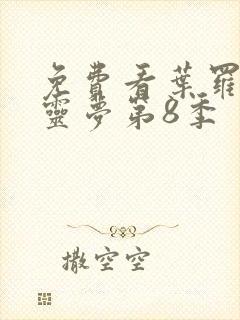 免費看葉羅
靈夢第8季
撒空空